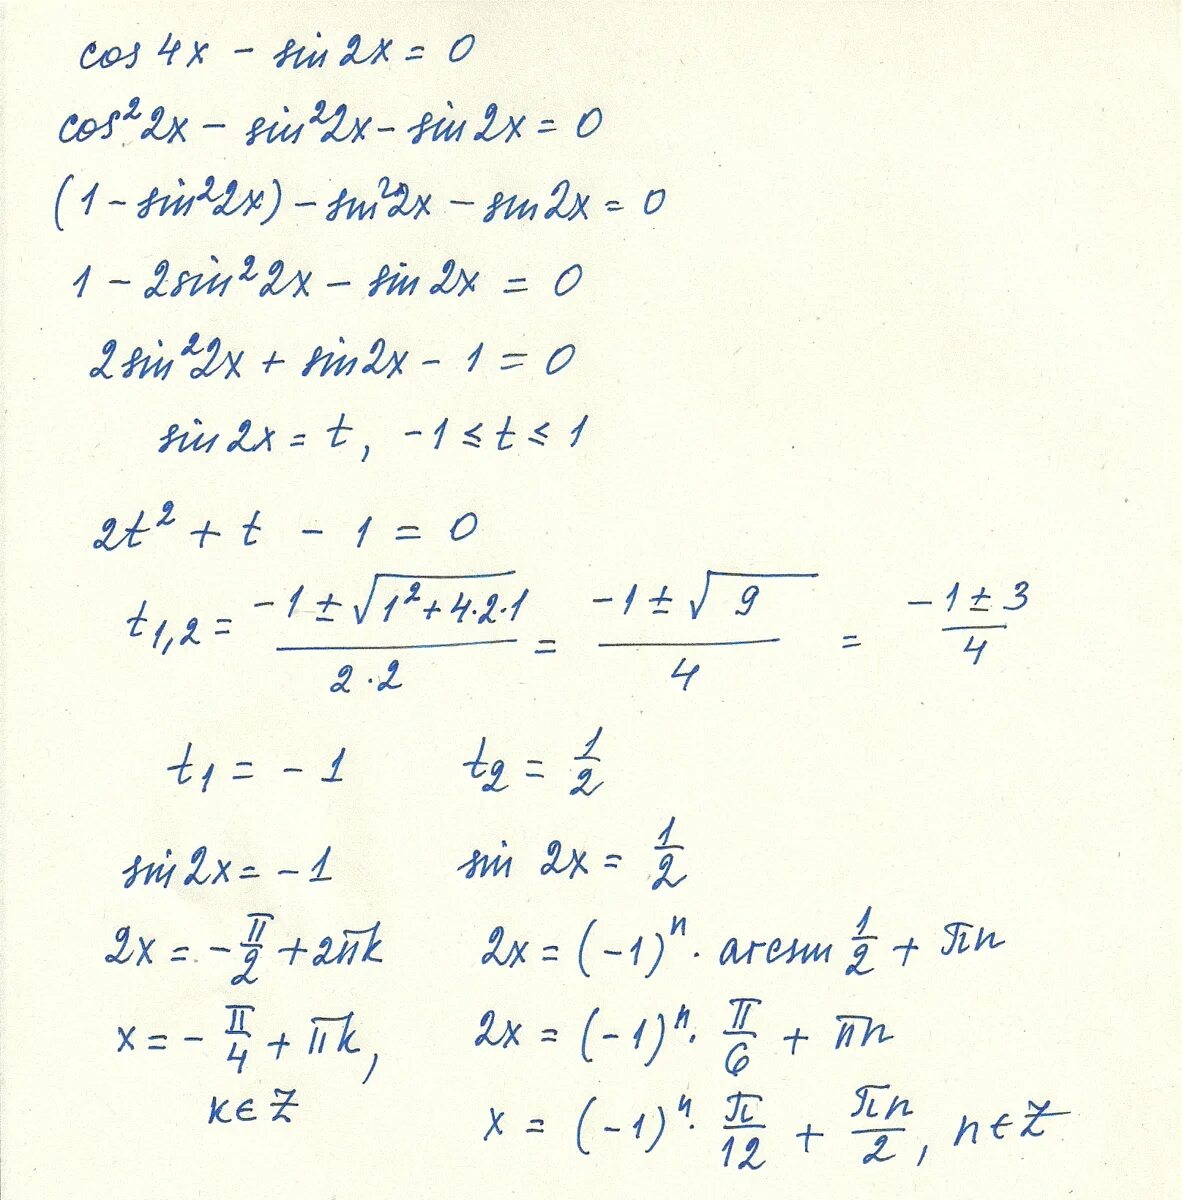 cos 4x - sin 2x = 0
cos² 2x - sin² 2x - sin 2x = 0
(1 - sin² 2x) - sin² 2x - sin 2x = 0
1 - 2sin² 2x - sin 2x = 0
2sin² 2x + sin 2x - 1 = 0
sin 2x = t, -1 ≤ t ≤ 1
2t² + t - 1 = 0
t₁,₂ = (-1 ± √(1² + 4·2·1))/(2·2) = (-1 ± √9)/4 = (-1 ± 3)/4
t₁ = -1 t₂ = 1/2
sin 2x = -1 sin 2x = 1/2
2x = -π/2 + 2πk 2x = (-1)ⁿ · arcsin 1/2 + πn
x = -π/4 + πk, 2x = (-1)ⁿ · π/6 + πn
k ∈ Z x = (-1)ⁿ · π/12 + πn/2, n ∈ Z